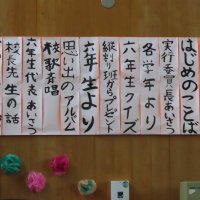 はじめのことば
実行委員長あいさつ
各学年より
六年生クイズ
縦割り班からプレゼント
六年生より
思い出のアルバム
校歌斉唱
六年生代表あいさつ
校長先生の話